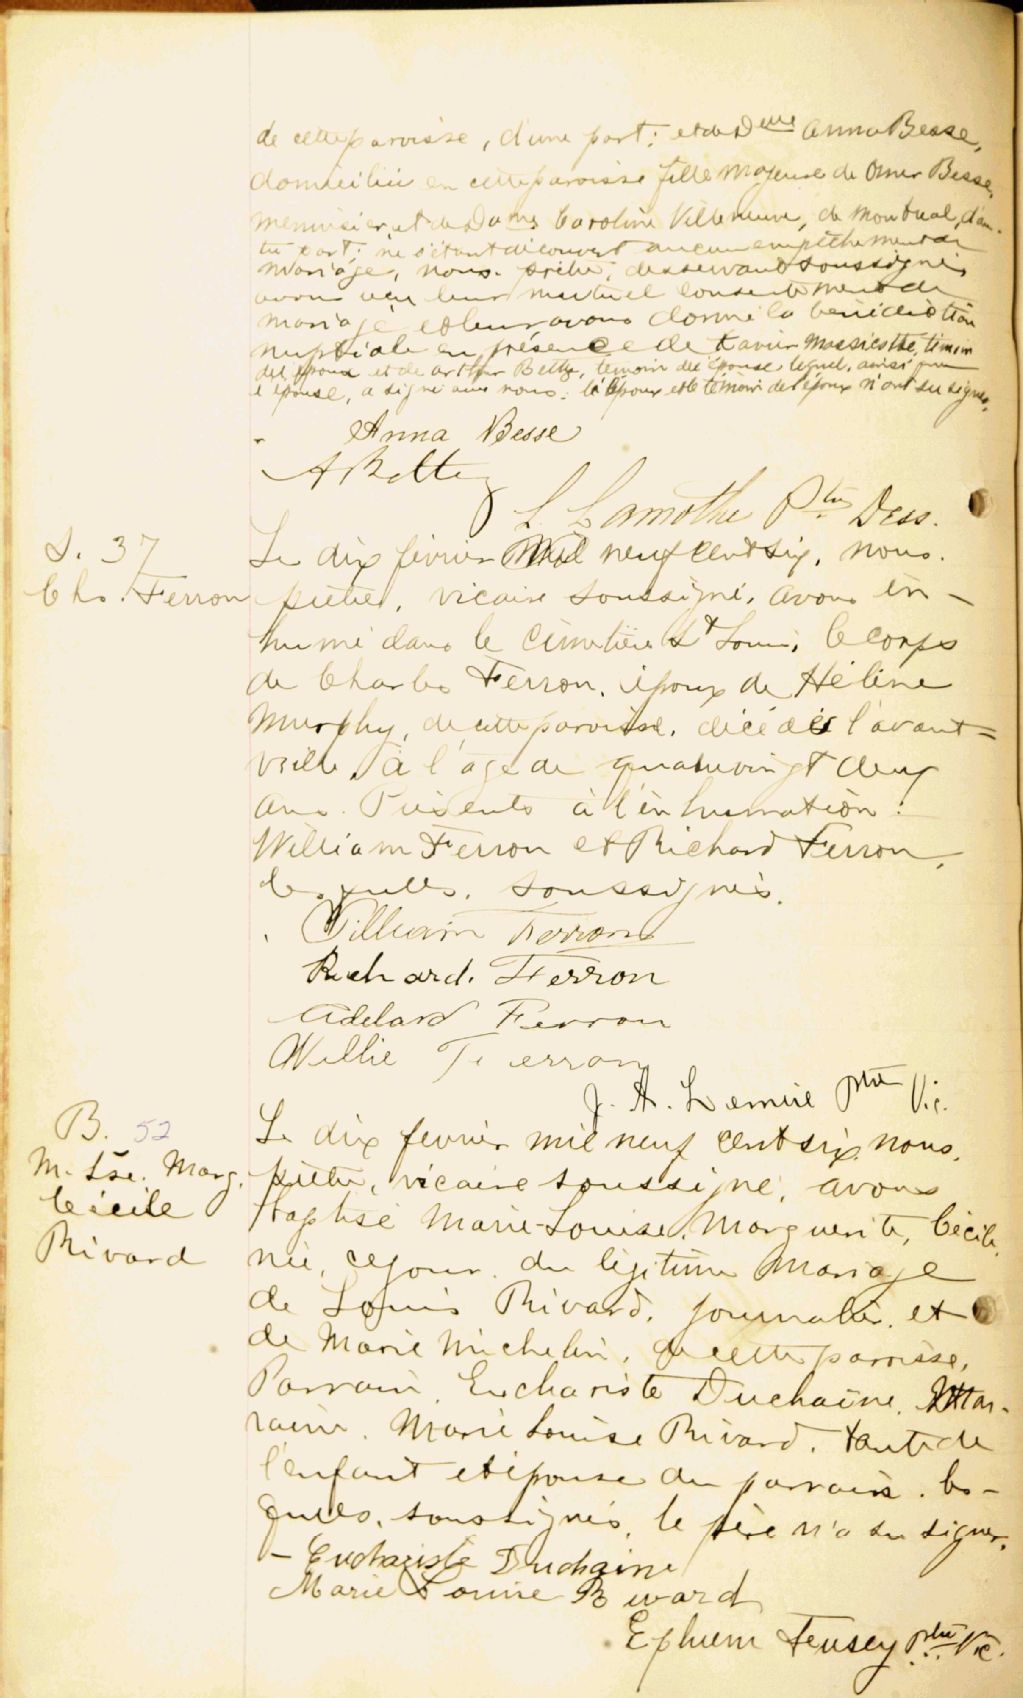 de cette paroisse, d'une part; et de Delle Anna Besse,
domiciliée en cette paroisse fille majeure de Omer Besse,
menuisier, et de Dame Caroline Villeneuve, de Montréal, d'au-
tre part; ne s'étant découvert aucun empêchement de
mariage, nous prêtre, desservant soussigné,
avons reçu leur mutuel consentement de
mariage et leur avons donné la bénédiction
nuptiale en présence de Xavier Massicotte, témoin
de l'époux et de Arthur Bettez, témoin de l'épouse lequel, ainsi que
l'épouse, a signé avec nous. L'époux et le témoin de l'époux n'ont su signer.
Anna Besse
A Bettez
L. Lamothe Ptre Dess.
S. 37
Chs. Ferron
Le dix février mil neuf cent six, nous.
prêtre, vicaire soussigné, avons in-
humé dans le cimetière St Louis, le corps
de Charles Ferron, époux de Hélène
Murphy, de cette paroisse, décédé l'avant=
veille, à l'âge de quatrevingt deux
ans. Présents à l'inhumation:
William Ferron et Richard Ferron,
lesquels, soussignés.
William Ferron
Richard. Ferron
Adelard Ferron
Willie Ferron
J. A. Lemire ptre Vic.
B. 52
M. Lse. Marg.
Cécile
Rivard
Le dix fevrier mil neuf cent six, nous,
prêtre, vicaire soussigné, avons
baptisé Marie-Louise, Marguerite, Cécile,
née, ce jour, du légitime mariage
de Louis Rivard, journalier, et
de Marie Michelin, de cette paroisse,
Parrain, Euchariste Duchaine, Mar-
raine, Marie Louise Rivard, tante de
l'enfant et épouse du parrain. les-
quels, soussignés, le père n'a su signer.
- Euchariste Duchaine
Marie Louise Rivard
Ephrem Ptre Vic.